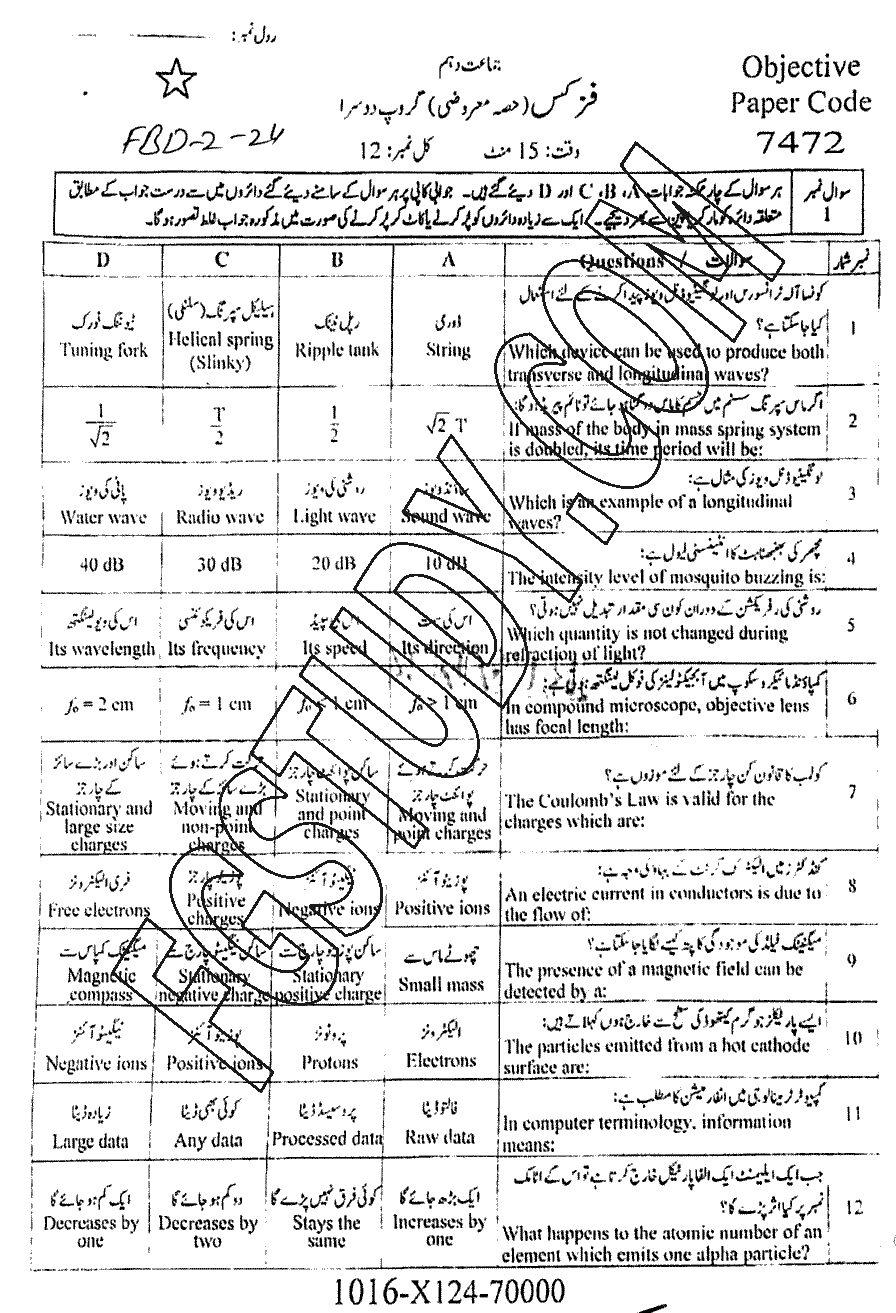 رول نمبر:
جماعت دہم
Objective
Paper Code
7472
فزکس (حصہ معروضی) گروپ دوسرا
FBD-2-24
وقت: 15 منٹ
کل نمبر: 12
سوال نمبر 1
ہر سوال کے چار ممکنہ جوابات A، B، C اور D دیئے گئے ہیں۔ جوابی کاپی پر ہر سوال کے سامنے دیئے گئے دائروں میں سے درست جواب کے مطابق
متعلقہ دائرہ کو مارکر یا پین سے بھر دیجیے۔ ایک سے زیادہ دائروں کو پُر کرنے یا کاٹ کر پُر کرنے کی صورت میں مذکورہ جواب غلط تصور ہو گا۔
نمبر شمار
سوالات / Questions
A
B
C
D
1
کونسا آلہ ٹرانسورس اور لونگیٹیوڈنل ویوز پیدا کرنے کے لئے استعمال
کیا جا سکتا ہے؟
Which device can be used to produce both
transverse and longitudinal waves?
ڈوری
String
رپل ٹینک
Ripple tank
ہیلیکل سپرنگ (سلنکی)
Helical spring
(Slinky)
ٹیوننگ فورک
Tuning fork
2
اگر ماس سپرنگ سسٹم میں جسم کا ماس دوگنا ہو جائے تو ٹائم پیریڈ ہو گا:
If mass of the body in mass spring system
is doubled, its time period will be:
√2 T
1/2
T/2
1/√2
3
لونگیٹیوڈنل ویوز کی مثال ہے:
Which is an example of a longitudinal
waves?
ساؤنڈ ویوز
Sound wave
روشنی کی ویوز
Light wave
ریڈیو ویوز
Radio wave
پانی کی ویوز
Water wave
4
مچھر کی بھنبھناہٹ کا انٹینسٹی لیول ہے:
The intensity level of mosquito buzzing is:
10 dB
20 dB
30 dB
40 dB
5
روشنی کی رفریکشن کے دوران کون سی مقدار تبدیل نہیں ہوتی؟
Which quantity is not changed during
refraction of light?
اس کی سمت
Its direction
اس کی سپیڈ
Its speed
اس کی فریکوئنسی
Its frequency
اس کی ویولینگتھ
Its wavelength
6
کمپاؤنڈ مائیکروسکوپ میں آبجیکٹو لینز کی فوکل لینگتھ ہوتی ہے:
In compound microscope, objective lens
has focal length:
fₒ > 1 cm
fₒ < 1 cm
fₒ = 1 cm
fₒ = 2 cm
7
کولمب کا قانون کن چارجز کے لئے موزوں ہے؟
The Coulomb's Law is valid for the
charges which are:
حرکت کرتے ہوئے
پوائنٹ چارجز
Moving and
point charges
ساکن پوائنٹ چارجز
Stationary
and point
charges
حرکت کرتے ہوئے
بڑے سائز کے چارجز
Moving and
non-point
charges
ساکن اور بڑے سائز
کے چارجز
Stationary and
large size
charges
8
کنڈکٹرز میں الیکٹرک کرنٹ کے بہاؤ کی وجہ ہے:
An electric current in conductors is due to
the flow of:
پوزیٹو آئنز
Positive ions
نیگیٹو آئنز
Negative ions
پوزیٹو چارجز
Positive
charges
فری الیکٹرونز
Free electrons
9
میگنیٹک فیلڈ کی موجودگی کا پتہ کیسے لگایا جا سکتا ہے؟
The presence of a magnetic field can be
detected by a:
چھوٹے ماس سے
Small mass
ساکن پوزیٹو چارج سے
Stationary
positive charge
ساکن نیگیٹو چارج سے
Stationary
negative charge
میگنیٹک کمپاس سے
Magnetic
compass
10
ایسے پارٹیکلز جو گرم کیتھوڈ کی سطح سے خارج ہوں کہلاتے ہیں:
The particles emitted from a hot cathode
surface are:
الیکٹرونز
Electrons
پروٹونز
Protons
پوزیٹو آئنز
Positive ions
نیگیٹو آئنز
Negative ions
11
کمپیوٹر ٹرمینالوجی میں انفارمیشن کا مطلب ہے:
In computer terminology, information
means:
فالتو ڈیٹا
Raw data
پروسیسڈ ڈیٹا
Processed data
کوئی بھی ڈیٹا
Any data
زیادہ ڈیٹا
Large data
12
جب ایک ایلیمنٹ ایک الفا پارٹیکل خارج کرتا ہے تو اس کے اٹامک
نمبر پر کیا اثر پڑے گا؟
What happens to the atomic number of an
element which emits one alpha particle?
ایک بڑھ جائے گا
Increases by
one
کوئی فرق نہیں پڑے گا
Stays the
same
دو کم ہو جائے گا
Decreases by
two
ایک کم ہو جائے گا
Decreases by
one
FGSTUDY.COM
1016-X124-70000